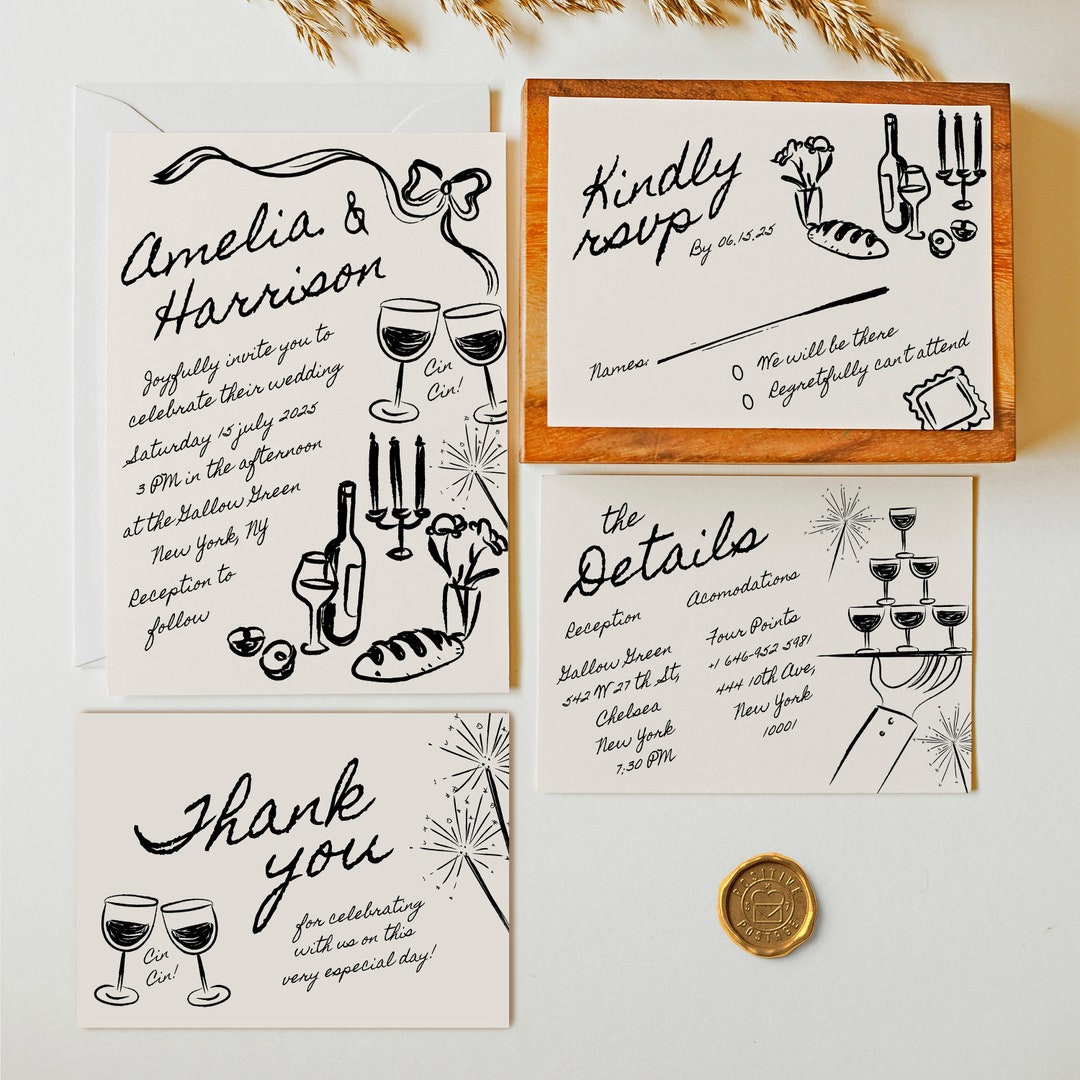 Amelia &
Harrison
Joyfully invite you to
celebrate their wedding
Saturday 15 july 2025
3 PM in the afternoon
at the Gallow Green
New York, NY
Reception to
follow
Cin
Cin!
Kindly
rsvp
By 06.15.25
Names:
We will be there
Regretfully can't attend
the
Details
Reception
Gallow Green
542 W 27 th St,
Chelsea
New York
7:30 PM
Acomodations
Four Points
+1 646-952 5981
444 10th Ave,
New York
10001
Thank
you
for celebrating
with us on this
very especial day!
Cin
Cin!
POSITIVE
POSTAGE